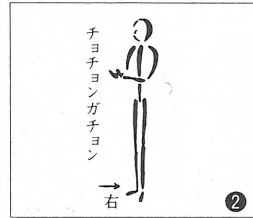 チョチョンガチョン
→
右
❷